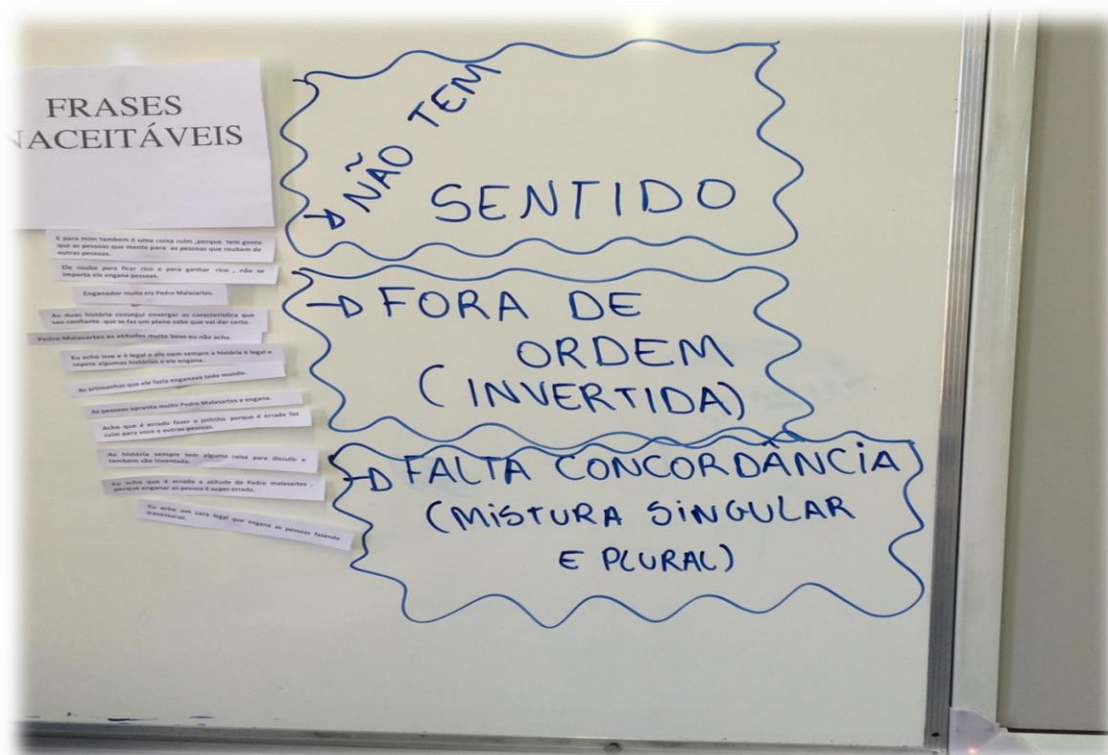 FRASES
NACEITÁVEIS
E para mim tambem é uma coisa ruim ,porque tem gente
que as pessoas que mente para as pessoas que roubam de
outras pessoas.
Ele rouba para ficar rico e para ganhar rico , não se
importa ele engana pessoas.
Enganador muito era Pedro Malasartes.
As duas história consegui enxergar as característica que
sao confiante que se faz um plano sabe que vai dar certo.
Pedro Malasartes as atitudes muito boas eu não acho.
Eu acho isso e é legal e ele nem sempre a história é legal e
repete algumas histórias e ele engana.
As artimanhas que ele fazia enganava todo mundo.
As pessoas apronta muito Pedro Malasartes e engana.
Acho que é errado fazer o jeitinho porque é errado faz
ruim para voce e outras pessoas.
As história sempre tem alguma coisa para discutir e
também são inventada.
Eu acho que é errado a atitude de Pedro malasartes ,
porque enganar as pessoa é super errado.
Eu acho um cara legal que engana as pessoas fazendo
travessuras.
NÃO TEM
SENTIDO
FORA DE
ORDEM
(INVERTIDA)
FALTA CONCORDÂNCIA
(MISTURA SINGULAR
E PLURAL)